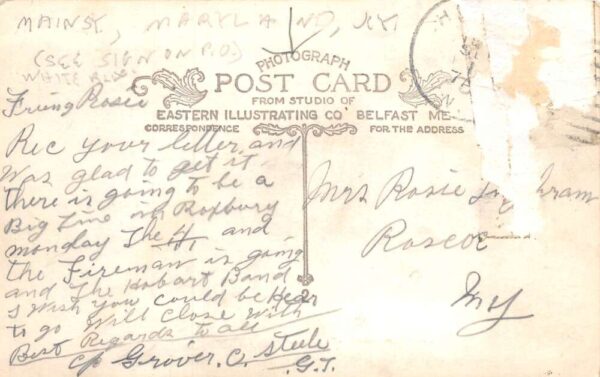 MAINST, MARYLAND, N.Y.
(SEE SIGN ON P.O.)
WHITE BLDG
PHOTOGRAPH
POST CARD
FROM STUDIO OF
EASTERN ILLUSTRATING CO BELFAST ME
CORRESPONDENCE
FOR THE ADDRESS
Friend Rosie
Rec your letter and
was glad to get it
there is going to be a
Big time in Roxbury
monday The 4 and
the Fireman is going
and The Hobart Band
I Wish you could be hear
to go Will Close With
Best Regards to all
Grover. C. Steele
G.T.
Mrs Rosie
Roscoe
NY